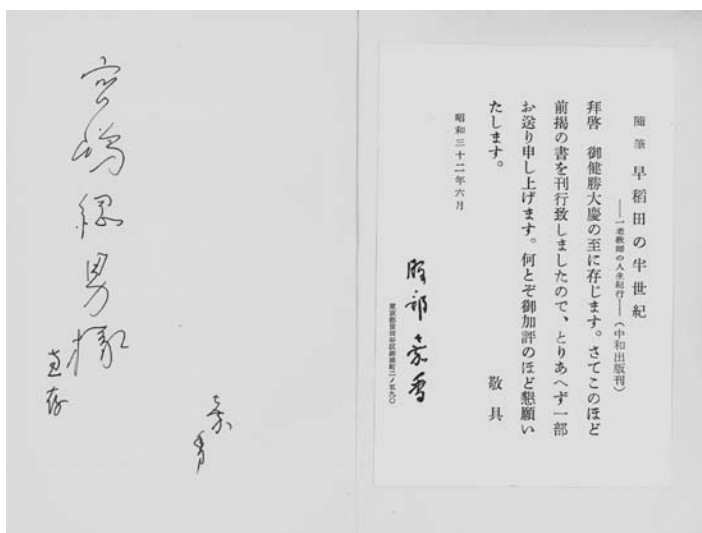 随筆 早稲田の半世紀
――一老教師の人生紀行――(中和出版刊)
拝啓 御健勝大慶の至に存じます。さてこのほど
前掲の書を刊行致しましたので、とりあへず一部
お送り申し上げます。何とぞ御加評のほど懇願い
たします。
敬具
昭和三十二年六月
服部嘉香
東京都世田谷区
宮嶋綱男様
恵存
嘉香